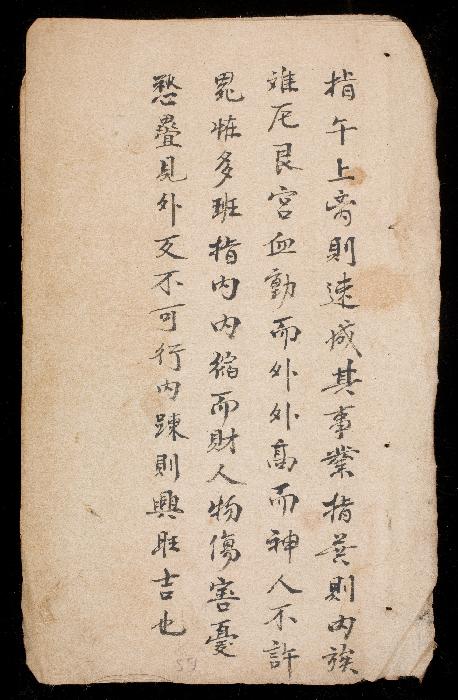 指午上高則速成其事業指巽則內族
难厄艮宮血動而外外高而神人不許
鬼恠多班指內內縮而財人物傷害憂
愁疊見外交不可行內踈則興旺吉也
59